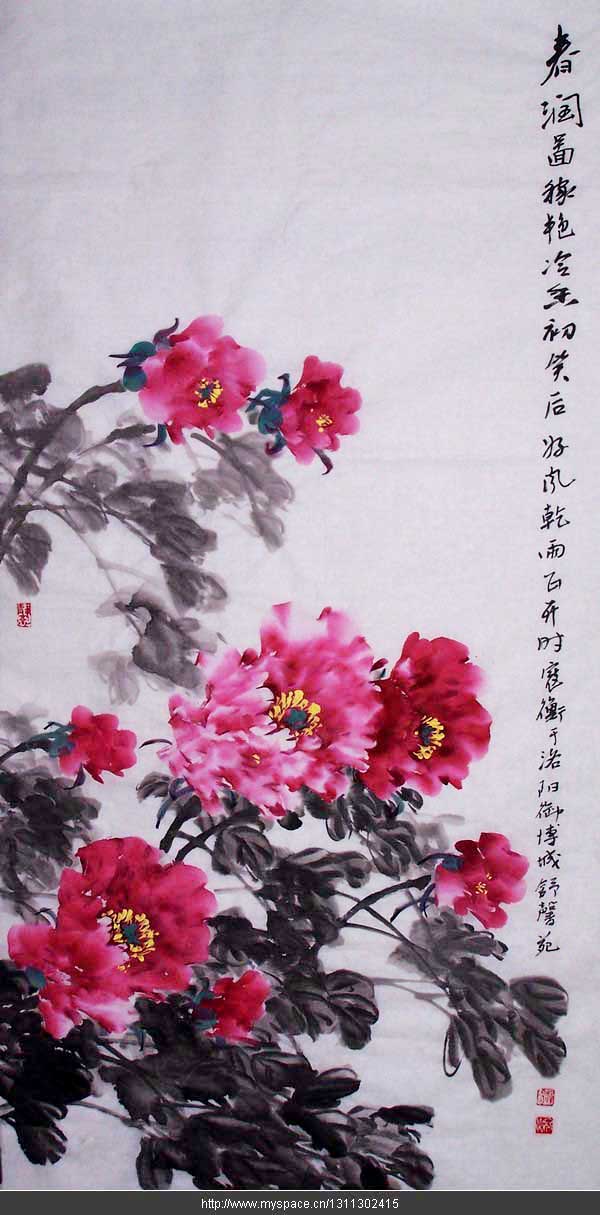 春润圖秾艳冷香初笑后好风乾雨正开时寇衡于洛阳御博城舒馨苑
http://www.myspace.cn/1311302415